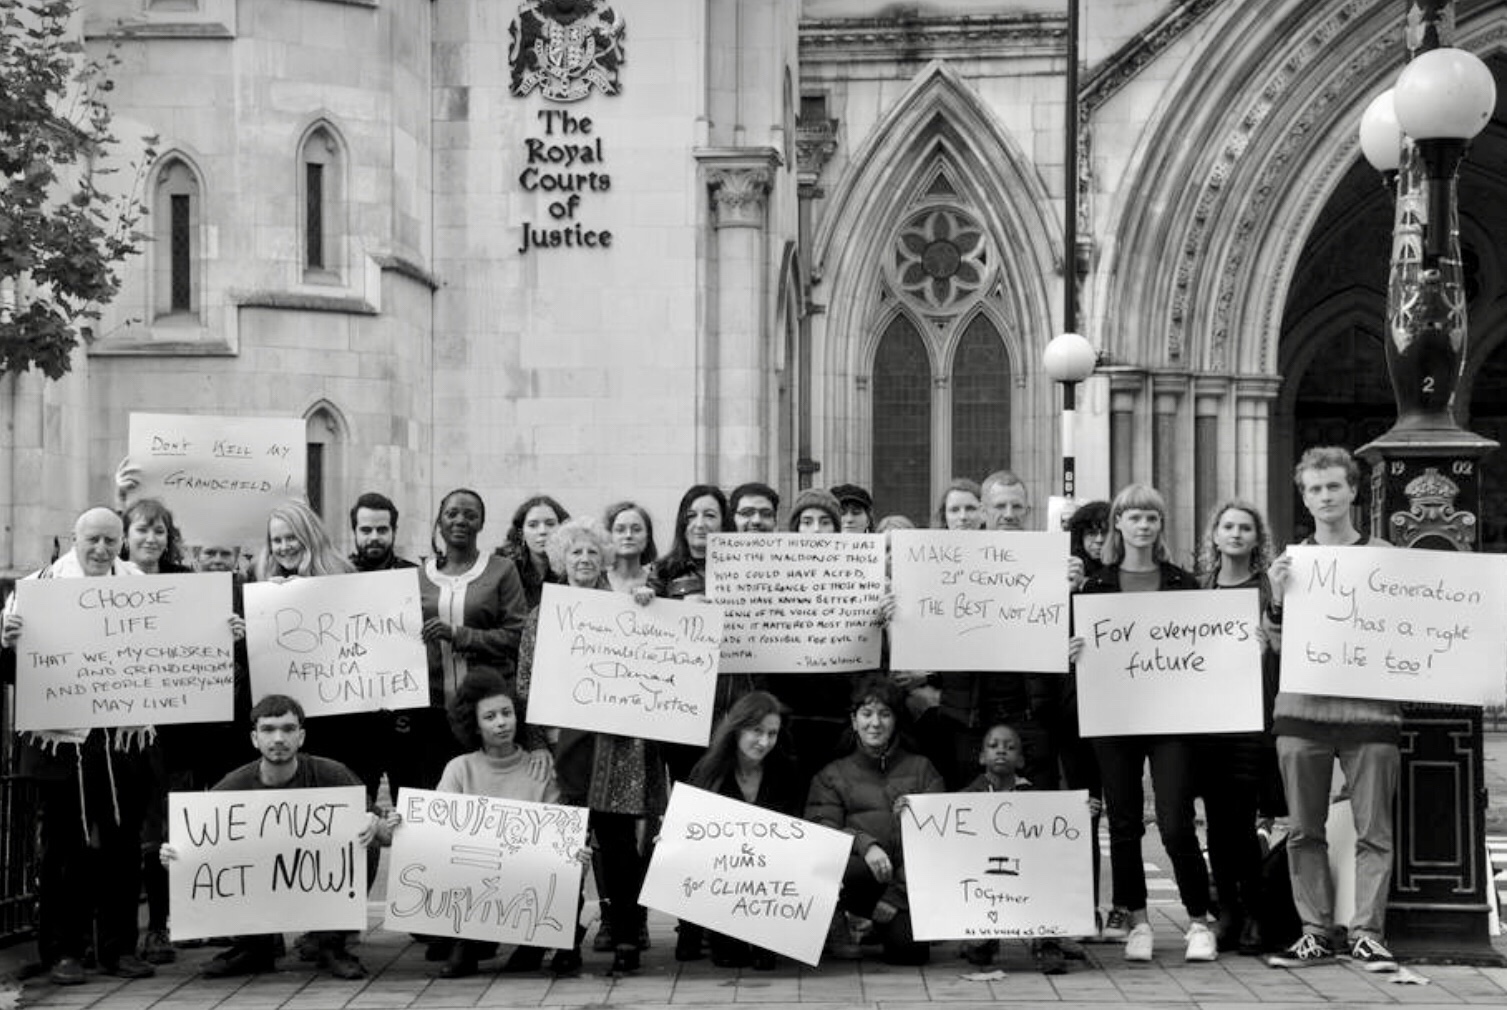 The
Royal
Courts
of
Justice
2
19 02
DON'T KILL MY
GRANDCHILD!
CHOOSE
LIFE
THAT WE, MY CHILDREN
AND GRANDCHILDREN
AND PEOPLE EVERYWHERE
MAY LIVE!
BRITAIN
AND
AFRICA
UNITED
Women, Children, Men,
Animals
Demand
Climate Justice
THROUGHOUT HISTORY IT HAS
BEEN THE INACTION OF THOSE
WHO COULD HAVE ACTED,
THE INDIFFERENCE OF THOSE WHO
SHOULD HAVE KNOWN BETTER, THE
OF THE VOICE OF JUSTICE
WHEN IT MATTERED MOST THAT
MADE IT POSSIBLE FOR EVIL TO
MAKE THE
21ST CENTURY
THE BEST NOT LAST
For everyone's
future
My Generation
has a right
to life too!
WE MUST
ACT NOW!
EQUITY
=
SURVIVAL
DOCTORS
&
MUMS
for CLIMATE
ACTION
WE CAN DO
IT
Together